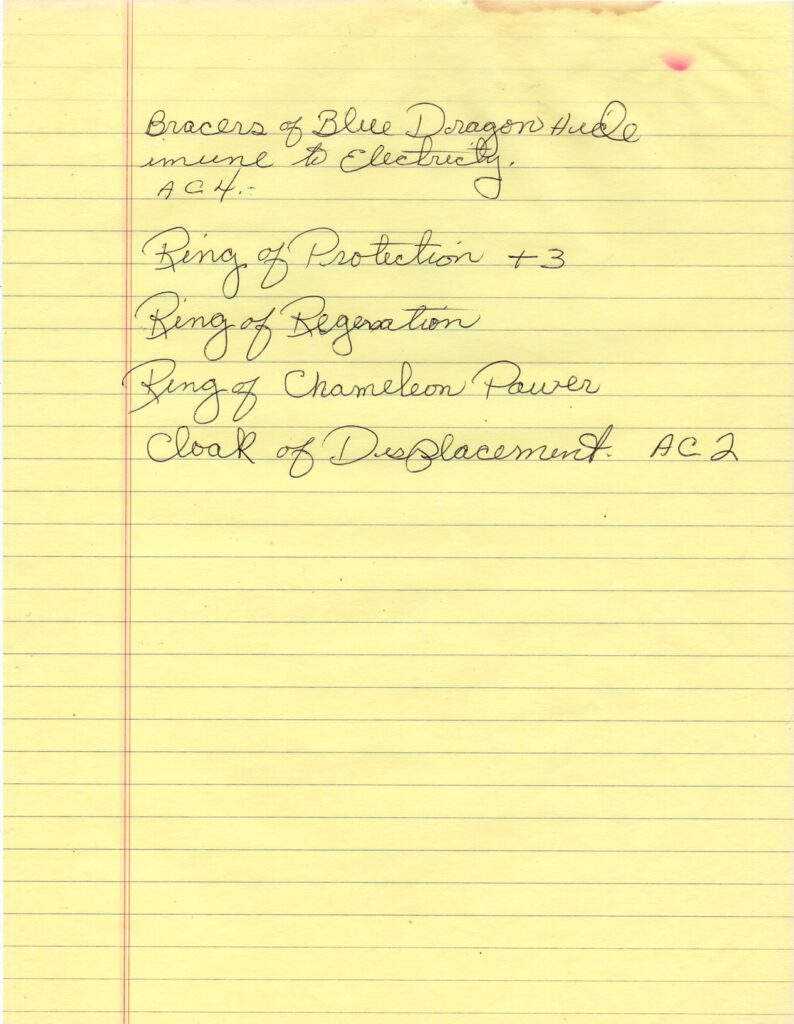 Bracers of Blue Dragon Hide
imune to Electricity.
AC 4.-
Ring of Protection +3
Ring of Regeration
Ring of Chameleon Power
Cloak of Displacement. AC 2